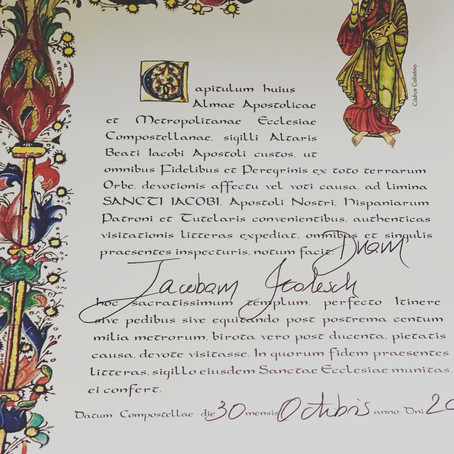 Capitulum huius
Almae Apostolicae
et Metropolitanae Ecclesiae
Compostellanae, sigilli Altaris
Beati Iacobi Apostoli custos, ut
omnibus Fidelibus et Peregrinis ex toto terrarum
Orbe, devotionis affectu vel voti causa, ad limina
SANCTI IACOBI, Apostoli Nostri, Hispaniarum
Patroni et Tutelaris convenientibus, authenticas
visitationis litteras expediat, omnibus et singulis
praesentes inspecturis, notum facit: Dnam
Jacobam
hoc sacratissimum templum, perfecto Itinere
sive pedibus sive equitando post postrema centum
milia metrorum, birota vero post ducenta, pietatis
causa, devote visitasse. In quorum fidem praesentes
litteras, sigillo eiusdem Sanctae Ecclesiae munitas,
ei confert.
Datum Compostellae die 30 mensis Octobris anno Dni 20
Códice Calixtino